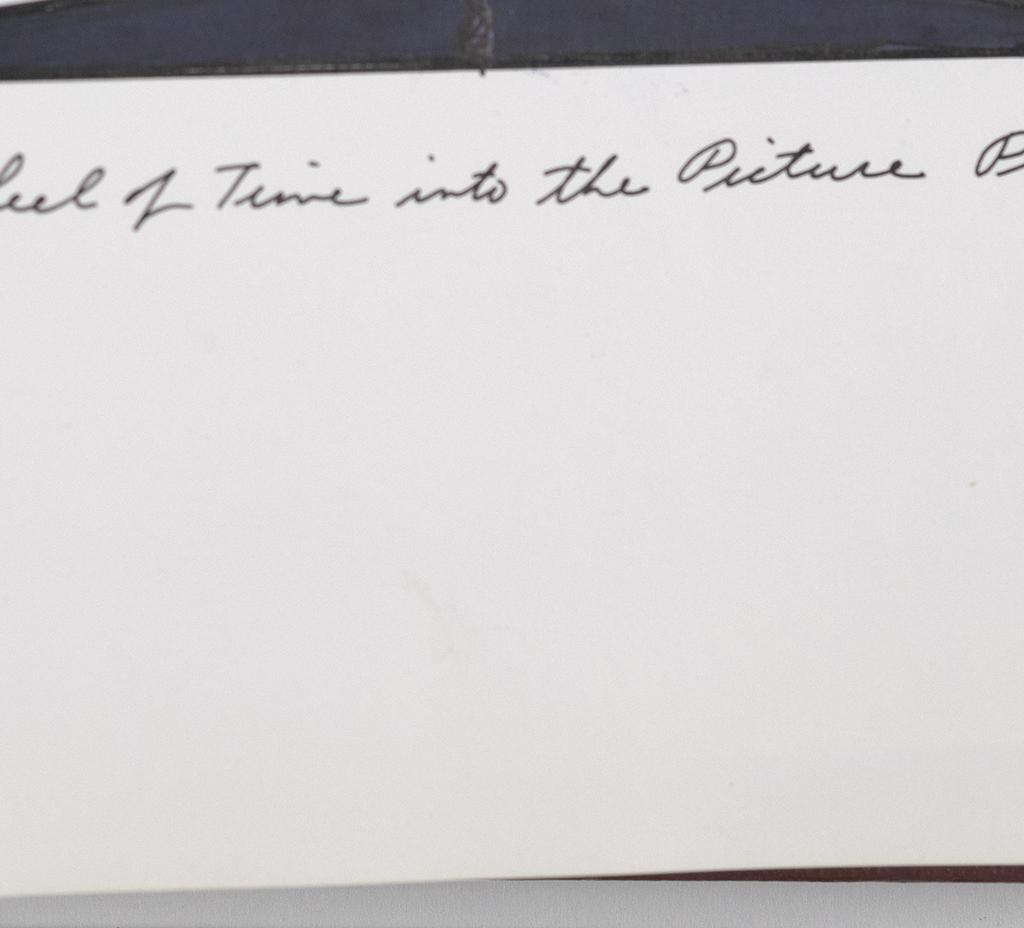 of Time into the Picture